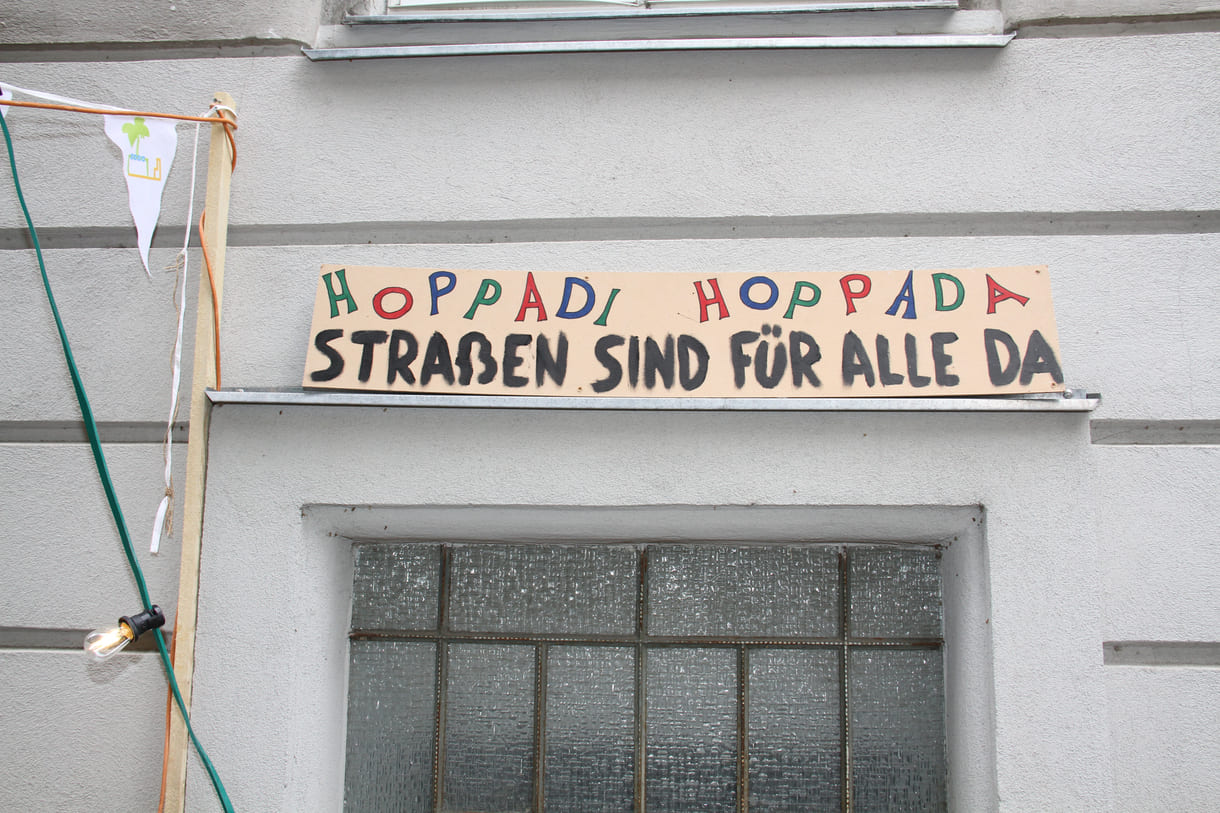 HOPPADI HOPPADA
STRAßEN SIND FÜR ALLE DA